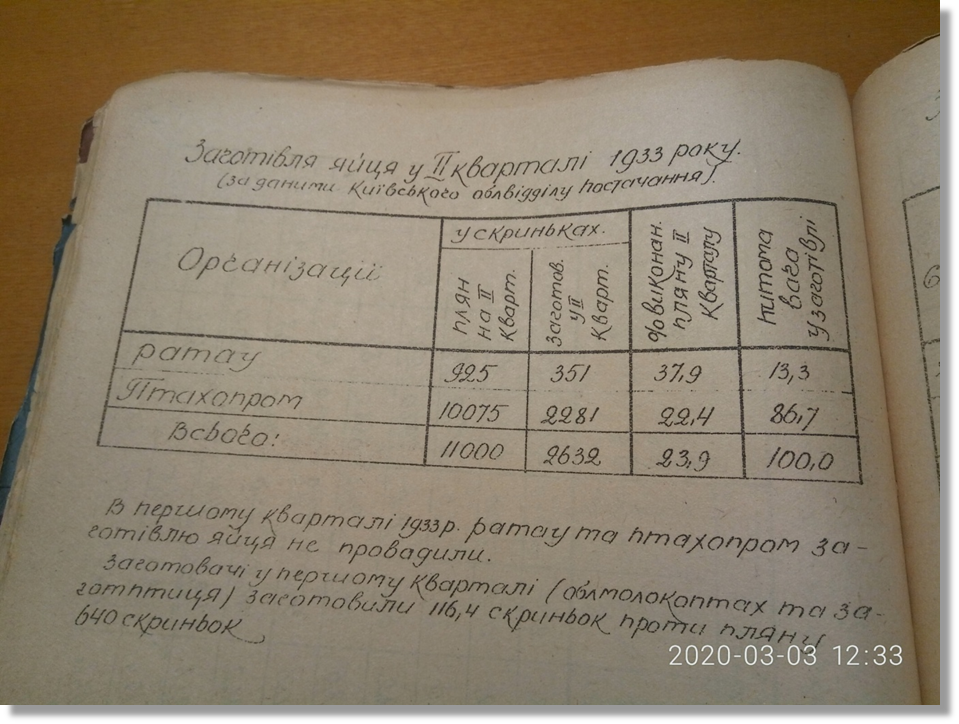 Заготівля яйця у II кварталі 1933 року.
(за даними Київського облвідділу постачання).
Організацій
у скриньках.
плян на II кварт.
заготов. у II кварт.
% виконан. пляну II кварталу
питома вага у заготівлі
ратау 925 351 37,9 13,3
Птахопром 10075 2281 22,4 86,7
Всього: 11000 2632 23,9 100,0
В першому кварталі 1933р. ратау та птахопром за-
готівлю яйця не провадили.
Заготовачі у першому кварталі (облмолокоптах та за-
готптиця) заготовили 116,4 скриньок проти пляну
640 скриньок
2020-03-03 12:33